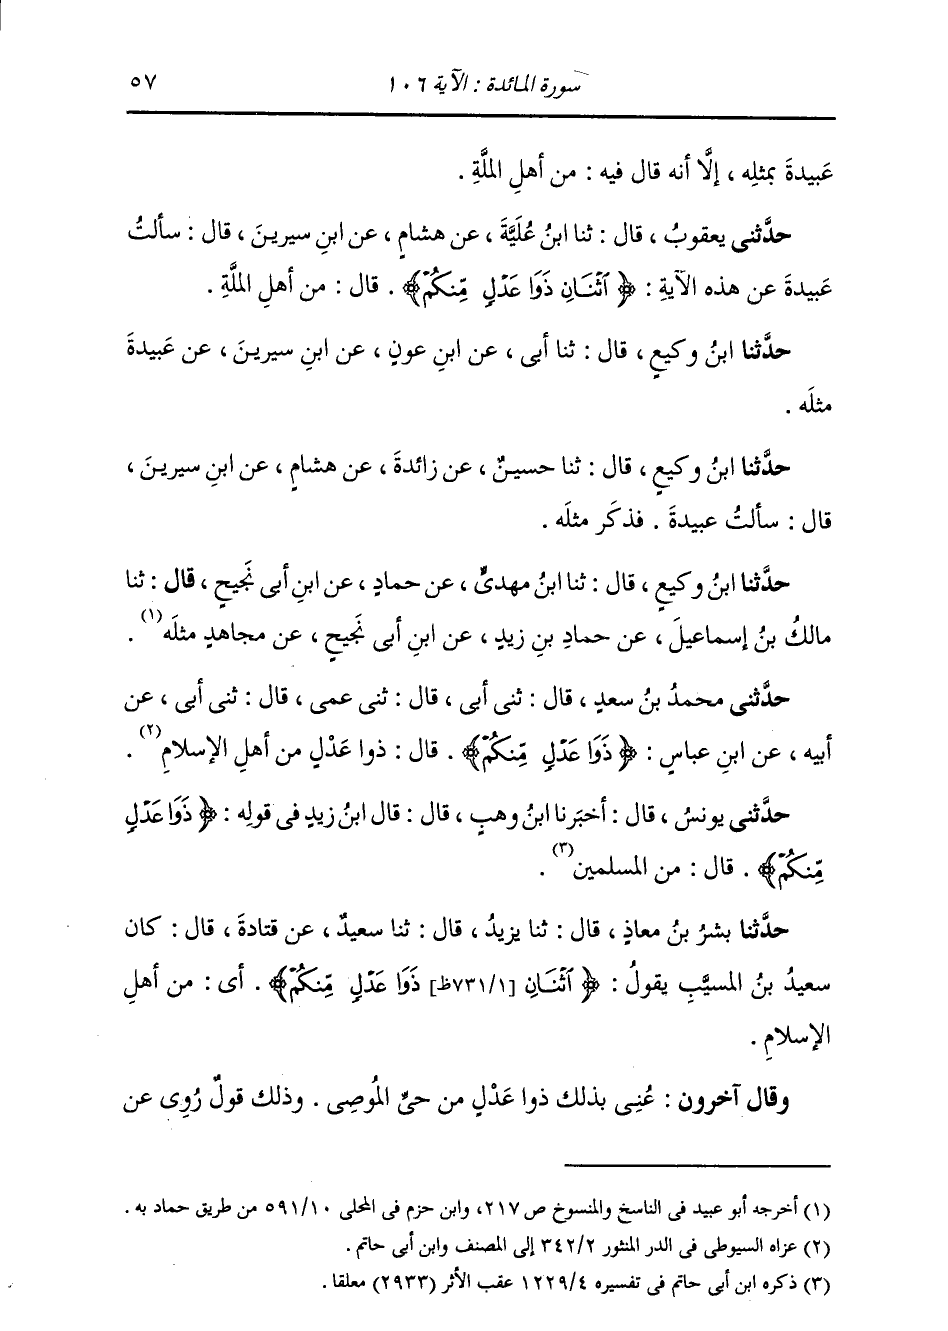 سورة المائدة : الآية ١٠٦
٥٧
عَبيدةَ بمثلِه ، إلَّا أنه قال فيه : من أهلِ الملَّةِ .
حدَّثنى يعقوبُ ، قال : ثنا ابنُ عُلَيَّةَ ، عن هشامٍ ، عن ابنِ سيرينَ ، قال : سألتُ
عَبيدةَ عن هذه الآيةِ : ﴿ ٱثْنَانِ ذَوَا عَدْلٍ مِّنكُمْ ﴾ . قال : من أهلِ الملَّةِ .
حدَّثنا ابنُ وكيعٍ ، قال : ثنا أبى ، عن ابنِ عونٍ ، عن ابنِ سيرينَ ، عن عَبيدةَ
مثلَه .
حدَّثنا ابنُ وكيعٍ ، قال : ثنا حسينٌ ، عن زائدةَ ، عن هشامٍ ، عن ابنِ سيرينَ ،
قال : سألتُ عبيدةَ . فذكَر مثلَه .
حدَّثنا ابنُ وكيعٍ ، قال : ثنا ابنُ مهدىٍّ ، عن حمادٍ ، عن ابنِ أبى نَجيحٍ ، قال : ثنا
مالكُ بنُ إسماعيلَ ، عن حمادِ بنِ زيدٍ ، عن ابنِ أبى نَجيحٍ ، عن مجاهدٍ مثلَه (١) .
حدَّثنى محمدُ بنُ سعدٍ ، قال : ثنى أبى ، قال : ثنى عمى ، قال : ثنى أبى ، عن
أبيه ، عن ابنِ عباسٍ : ﴿ ذَوَا عَدْلٍ مِّنكُمْ ﴾ . قال : ذوا عَدْلٍ من أهلِ الإسلامِ (٢) .
حدَّثنى يونسُ ، قال : أخبَرنا ابنُ وهبٍ ، قال : قال ابنُ زيدٍ فى قولِه : ﴿ ذَوَا عَدْلٍ
مِّنكُمْ ﴾ . قال : من المسلمين (٣) .
حدَّثنا بشرُ بنُ معاذٍ ، قال : ثنا يزيدُ ، قال : ثنا سعيدٌ ، عن قتادةَ ، قال : كان
سعيدُ بنُ المسيَّبِ يقولُ : ﴿ ٱثْنَانِ [٧٣١/١ظ] ذَوَا عَدْلٍ مِّنكُمْ ﴾ . أى : من أهلِ
الإسلامِ .
وقال آخرون : عُنِى بذلك ذوا عَدْلٍ من حىِّ المُوصِى . وذلك قولٌ رُوِى عن
(١) أخرجه أبو عبيد فى الناسخ والمنسوخ ص ٢١٧، وابن حزم فى المحلى ٥٩١/١٠ من طريق حماد به .
(٢) عزاه السيوطى فى الدر المنثور ٣٤٢/٢ إلى المصنف وابن أبى حاتم .
(٣) ذكره ابن أبى حاتم فى تفسيره ١٢٢٩/٤ عقب الأثر (٢٩٣٣) معلقا .